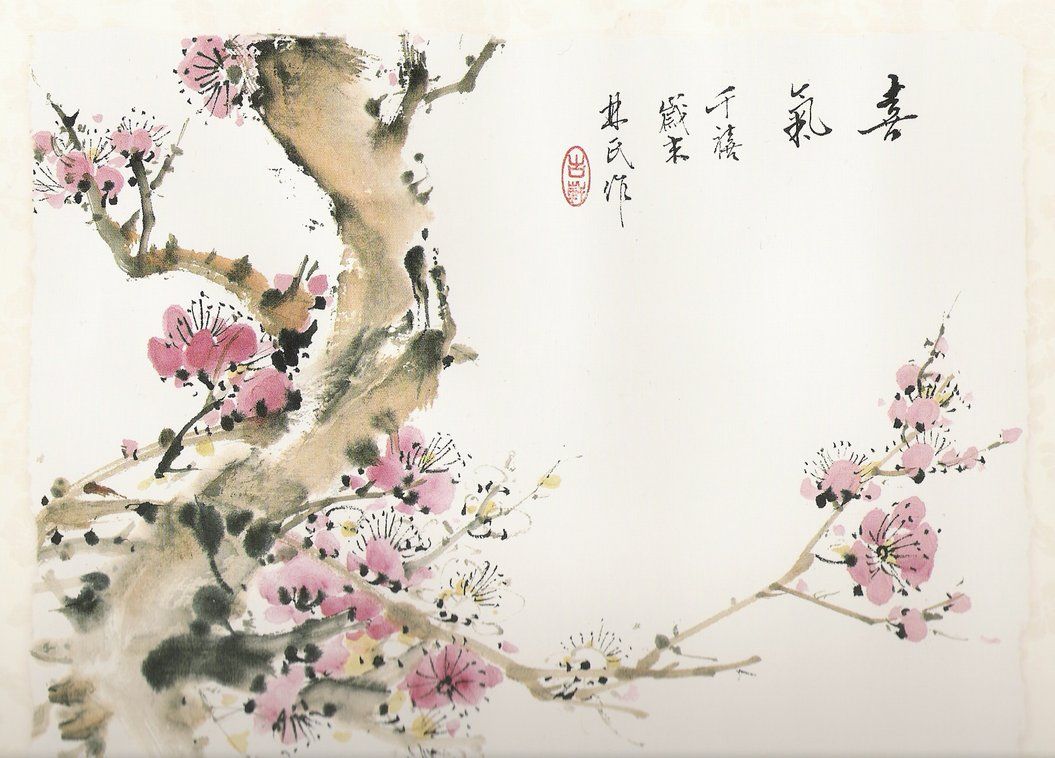 喜
氣
千禧
歲末
林氏作